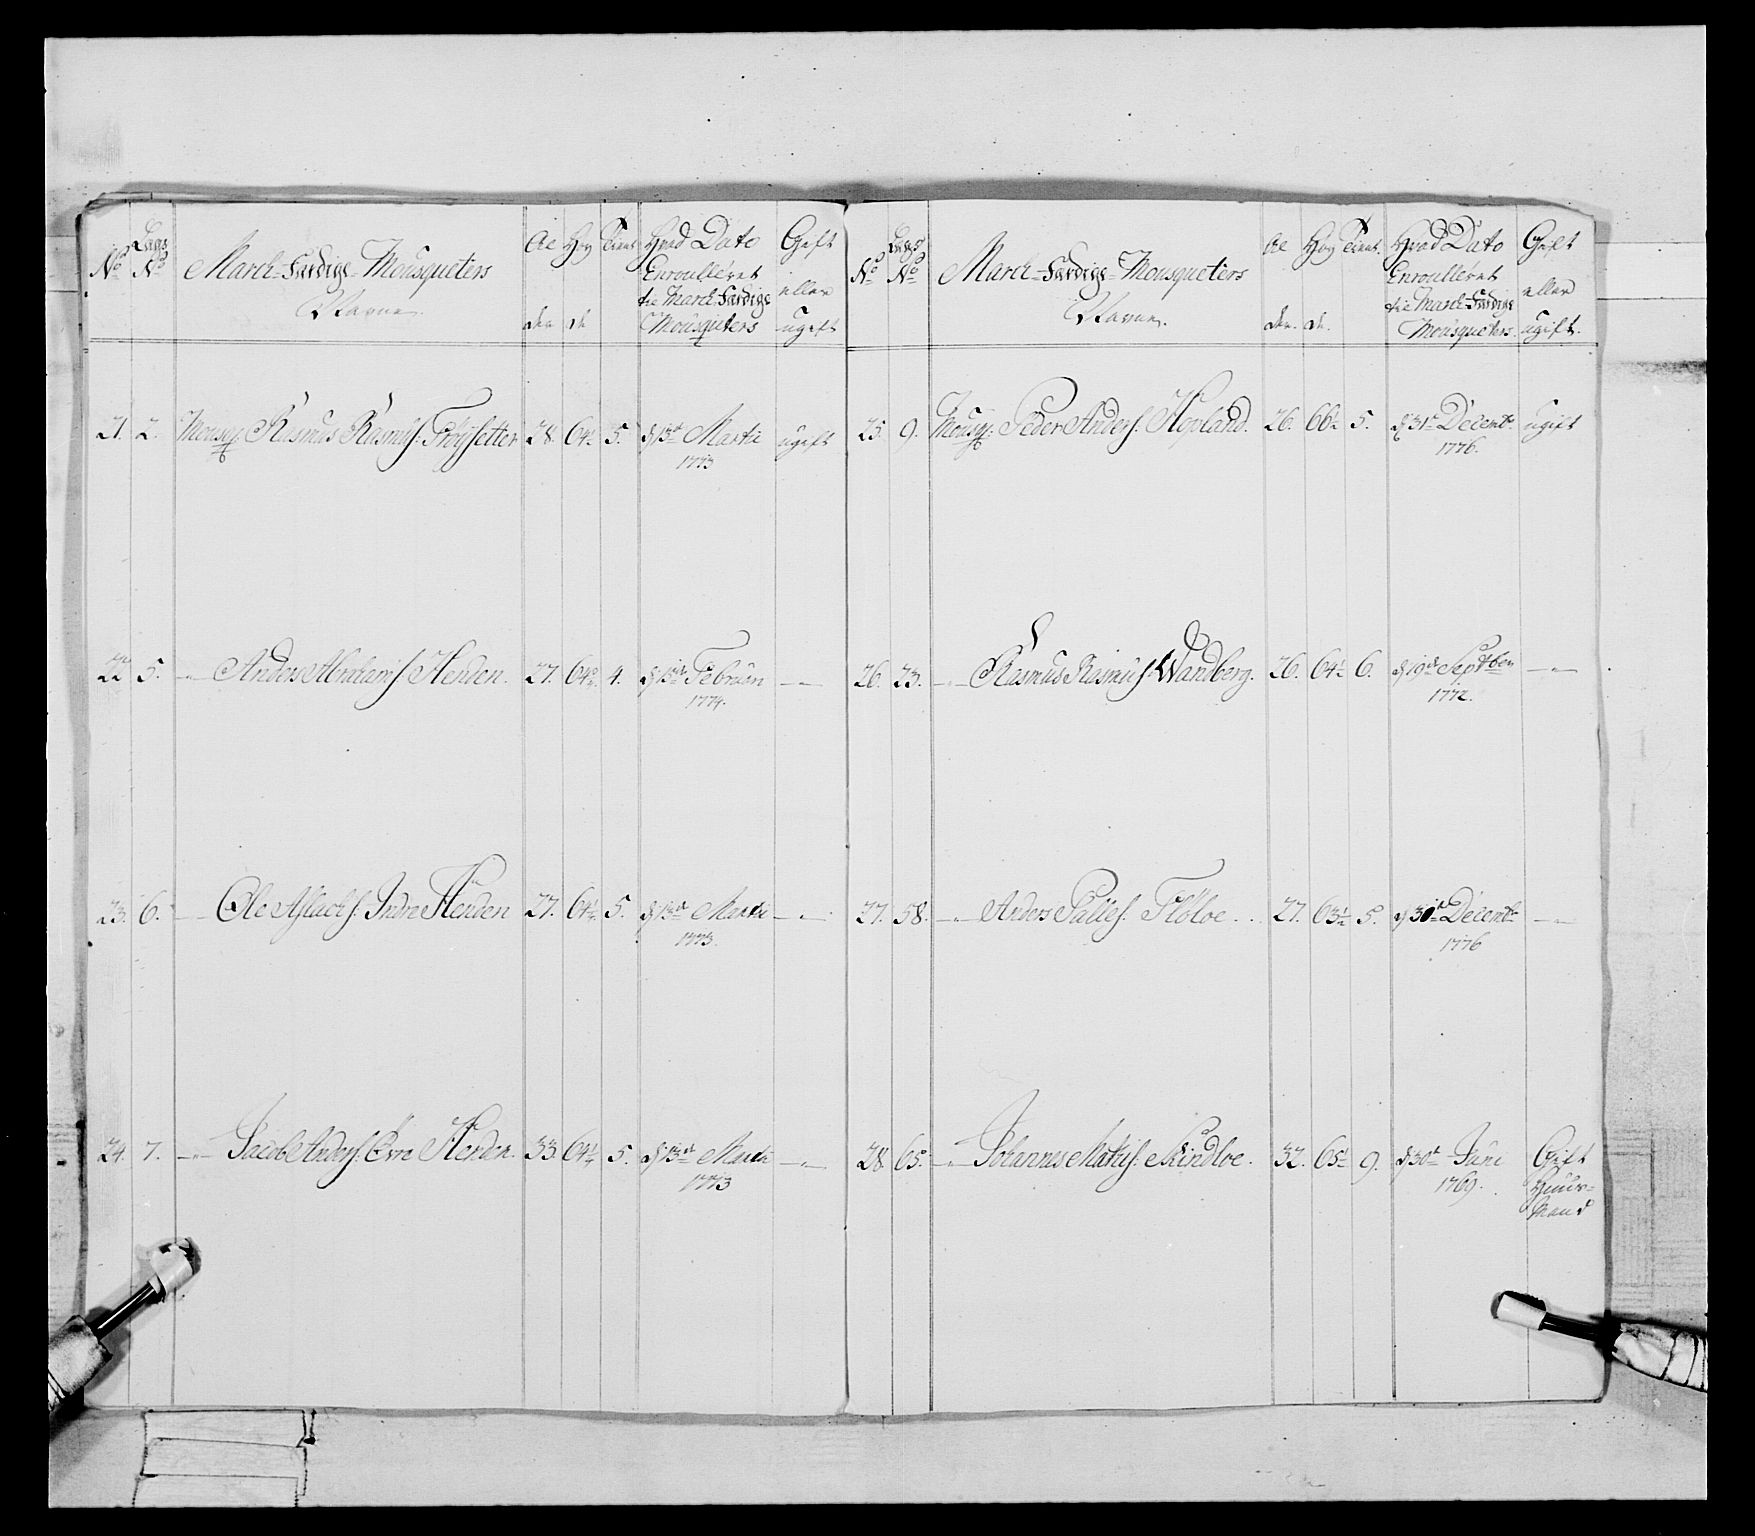 No Lægs No March-Færdige-Mousqueters Navne. Al der Høy de Tient Hvad Dato Enroulléret til March-Færdige Mousqueters Gift eller ugift
21. 2. Mousq. Rasmus Rasmus: Frøysetter 28. 64½ 5. d 13de Martii 1773 ugift
22 5. -"- Anders Abrahams: Henden. 27. 64½ 4. d 15de Februar 1774. -"-
23. 6. -"- Ole Aslachs: Indre Henden 27. 64½ 5. d 13de Martii 1773. -"-
24. 7. -"- Jacob Anders: Øvre Henden. 33. 64½ 5. d 13de Martii 1773 -"-
No Lægs No March-Færdige-Mousqueters Navne. Al der. Høy de. Tient. Hvad Dato Enroulléret til March-Færdige Mousqueters. Gift eller ugift.
25. 9. Mousq: Peder Anders: Hovland. 26. 66½ 5. d 31te Decembr 1776. ugift
26. 23. -"- Rasmus Rasmus: Wandberg. 26. 64½ 6. d 19de Septber 1772. -"-
27. 58. -"- Anders Palies: Fløloe. 27. 63½ 5. d 30te Decembr 1776 -"-
28. 65. -"- Johannes Matiis: Kindloe. 32. 65½ 9. d 30te Juni 1769. Gift Huus-Mand